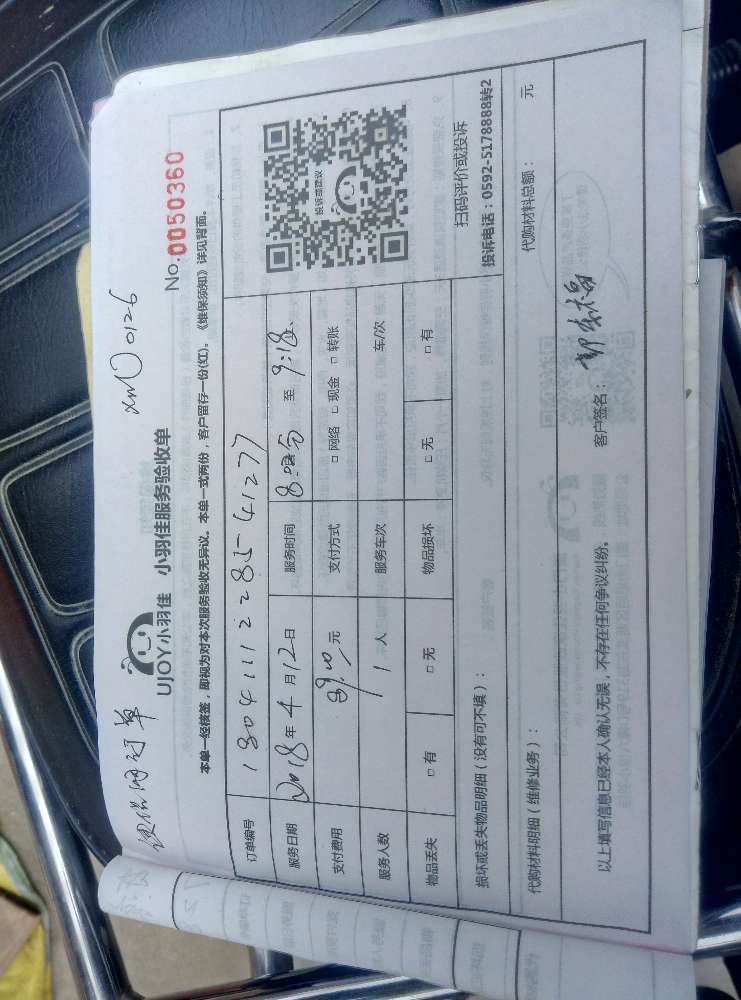 xm10 0126
No.0050360
UJOY小羽佳 小羽佳服务验收单
本单一经核签，即视为对本次服务验收无异议。本单一式两份，客户留存一份(红)。《维保须知》详见背面。
订单编号 1804111228541277
服务日期 2018年4月12日 服务时间 至 9:18
支付费用 元 支付方式 □网络 □现金 □转账
服务人数 1人 服务车次 车/次
物品丢失 □有 □无 物品损坏 □无 □有
投诉或建议
扫码评价或投诉
投诉电话：0592-5178888转2
损坏或丢失物品明细（没有可不填）：
代购材料明细（维修业务）： 代购材料总额： 元
以上填写信息已经本人确认无误，不存在任何争议纠纷。 客户签名：